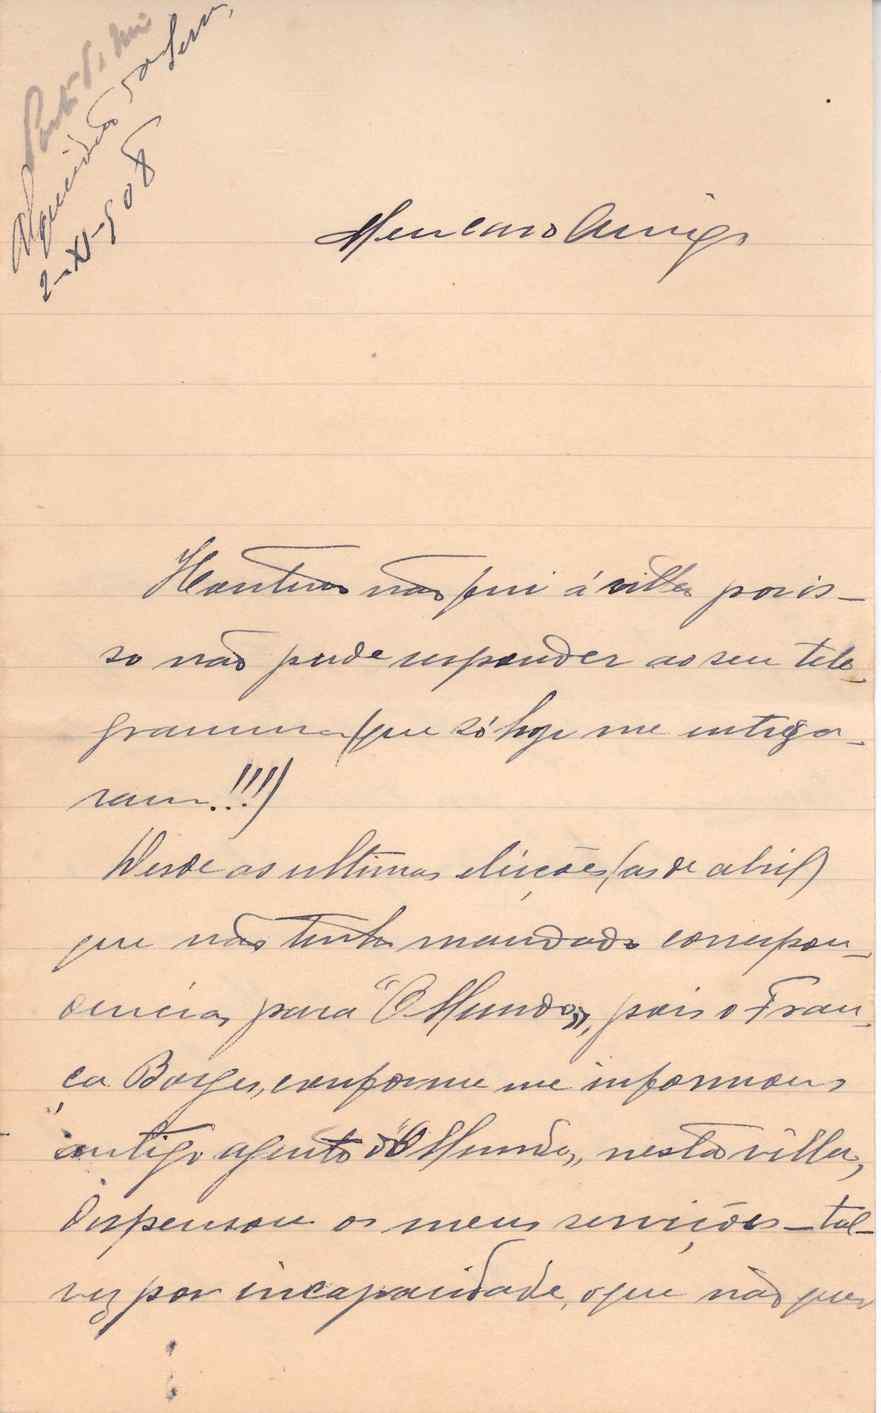 Porto de Mós
Alqueidão da Serra,
2-XI-908
Meu caro Amigo
Hontem não fui á villa por is-
so não pude responder ao seu tele-
gramma (que só hoje me entrega-
ram!!!)
Desde as ultimas eleições (as de abril)
que não tenho mandado correspon-
dencias para "O Mundo", pois o Fran-
ça Borges, conforme me informou o
antigo agente d'"O Mundo", nesta villa,
dispensou os meus serviços - tal-
vez por incapacidade, o que não quer